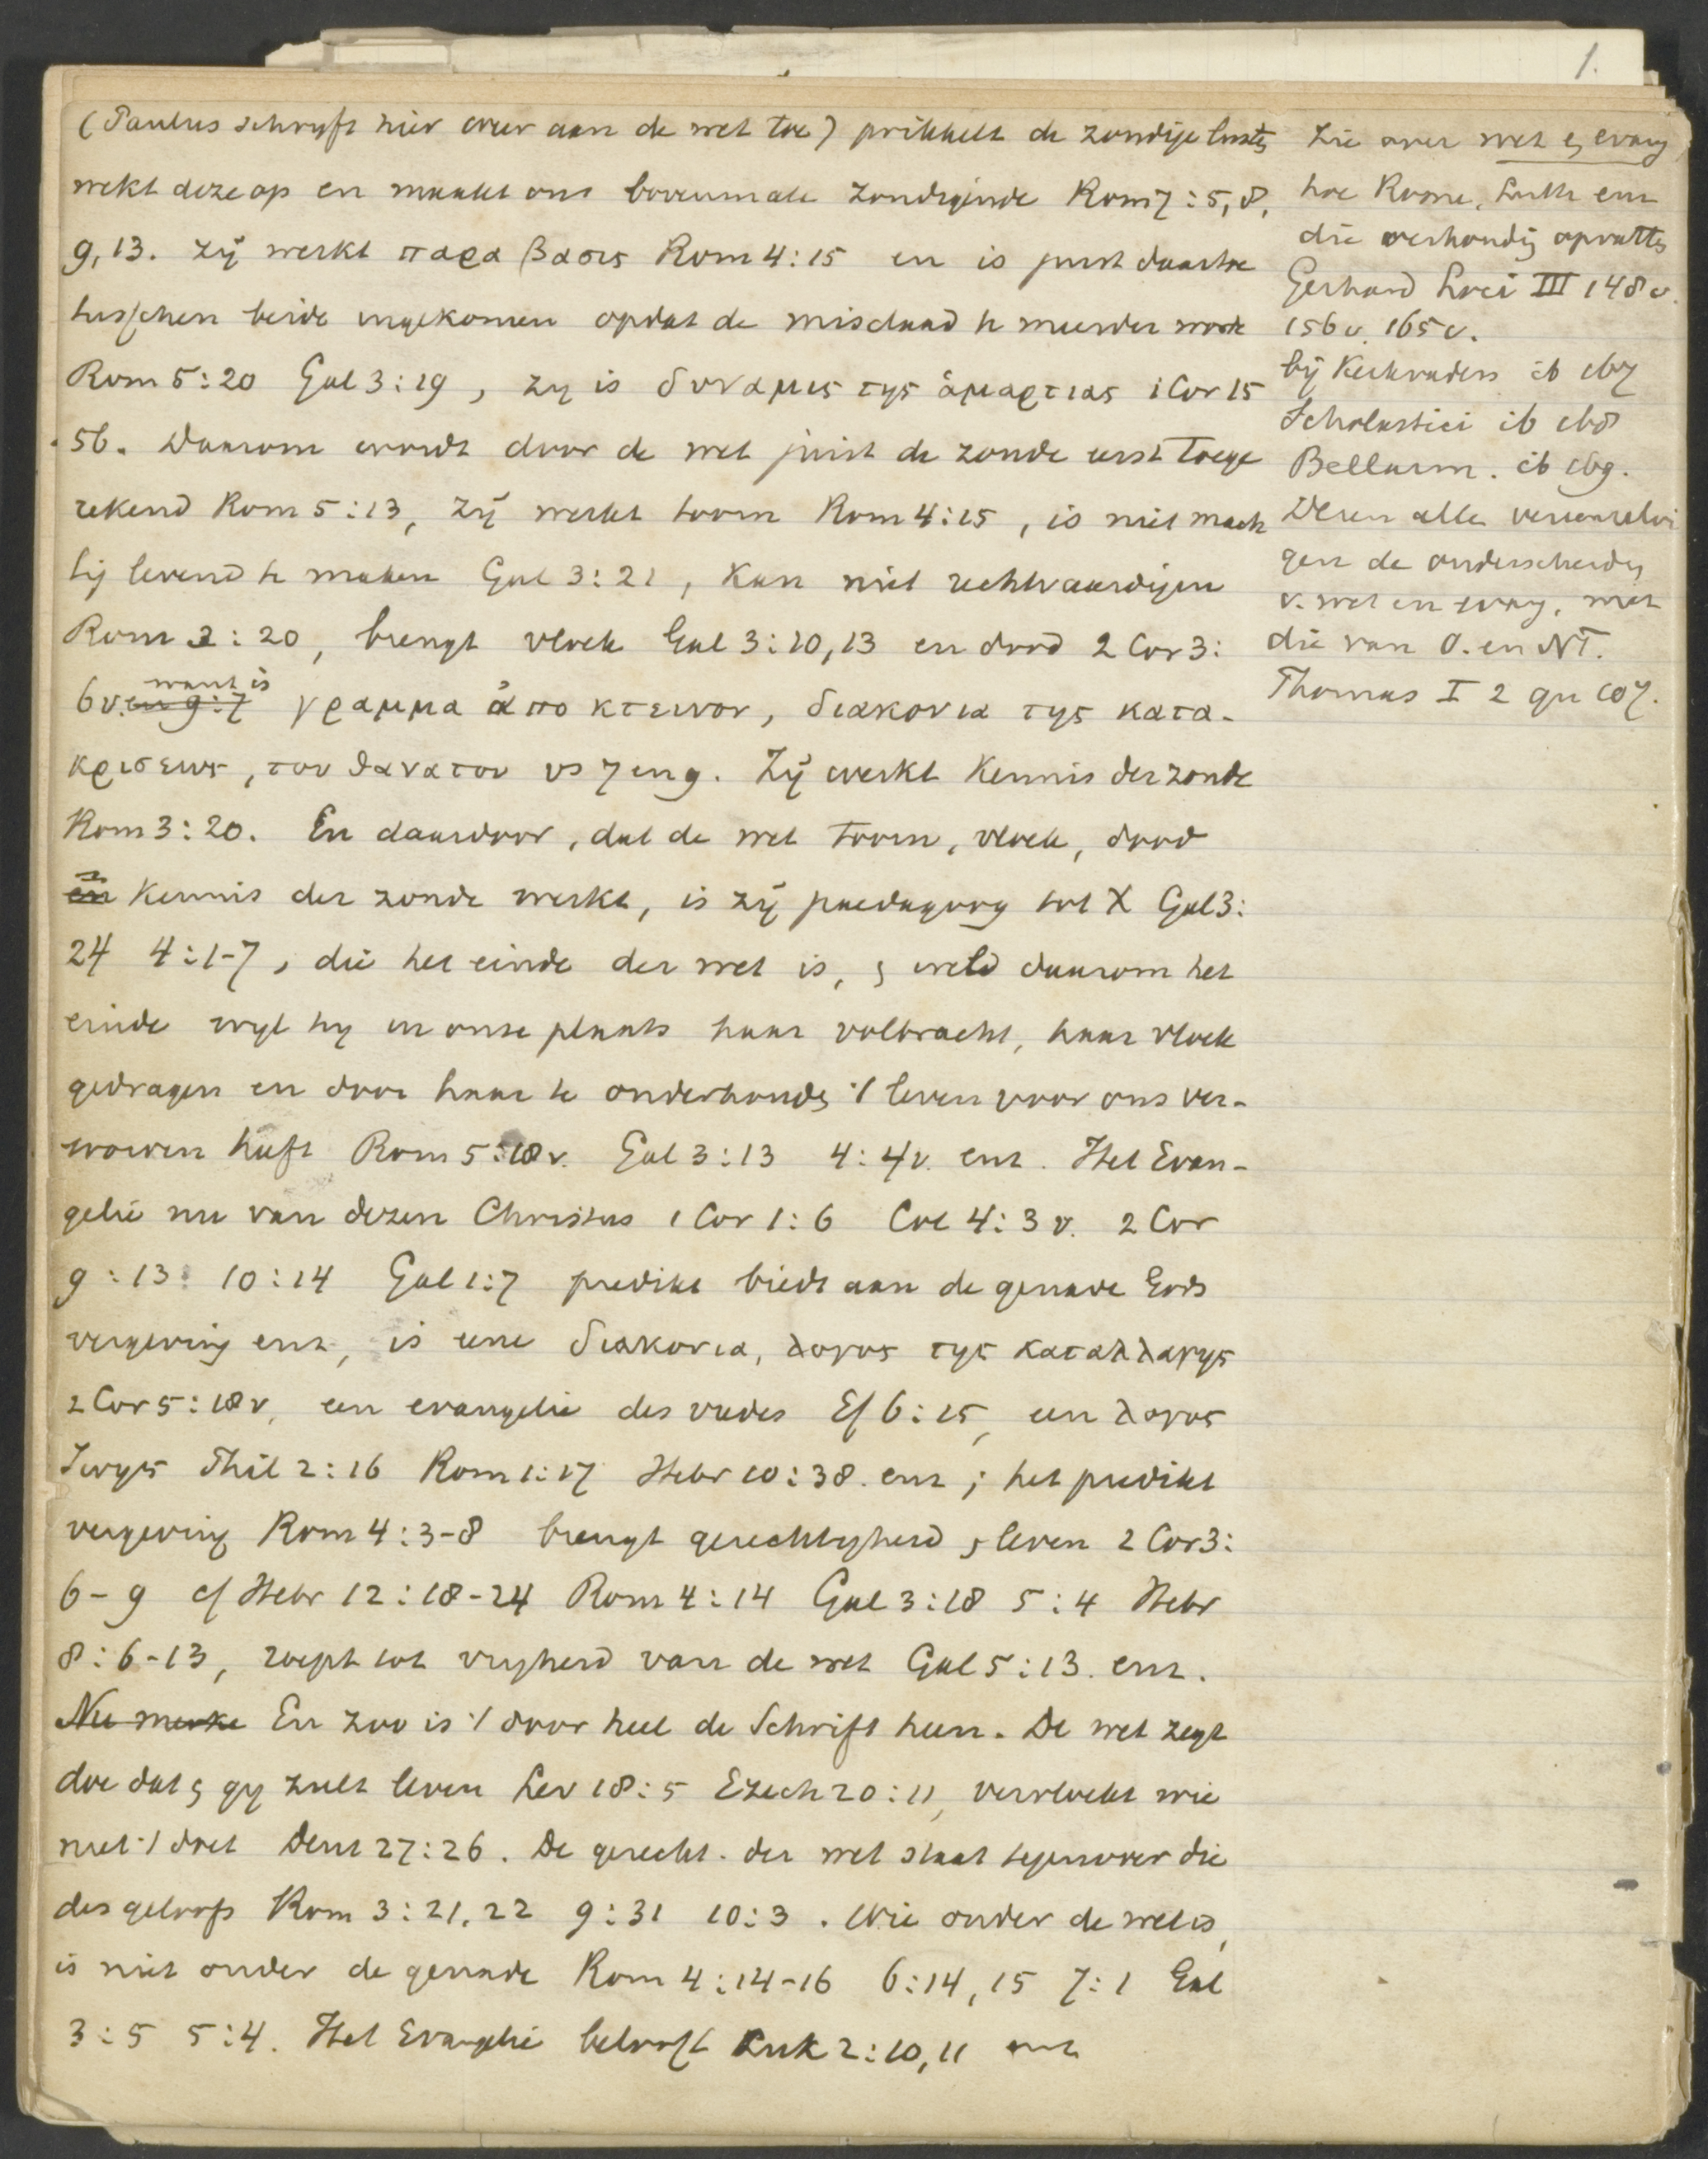 1.
(Paulus schryft hier weer aan de wet toe) prikkelt de zondige lusten
wekt deze op en maakt ons bovenmate zondigende Rom 7:5, 8,
9, 13. Zij werkt παραβασις Rom 4:15 en is juist daartoe
tusschen beide ingekomen opdat de misdaad te meerder worde
Rom 5:20 Gal 3:19, zy is δυναμις της ἁμαρτιας 1 Cor 15
56. Daarom wordt door de wet juist de zonde eerst toege
rekend Rom 5:13, zij werkt toorn Rom 4:15, is niet mach
tig levend te maken Gal 3:21, kan niet rechtvaardigen
Rom 3:20, brengt vloek Gal 3:10, 13 en dood 2 Cor 3:
want is
6v. en 9:7 γραμμα ἀποκτεινον, διακονια της κατα-
κρισεως, του θανατου vs 7 en 9. Zij werkt kennis der zonde
Rom 3:20. En daardoor, dat de wet toorn, vloek, dood
en kennis der zonde werkt, is zij paedagoog tot X Gal 3:
24 4:1-7, die het einde der wet is, en weld daarom het
einde wyl hy in onze plaats haar volbracht, haar vloek
gedragen en door haar te onderhouden 't leven voor ons ver-
worven heeft Rom 5:18v. Gal 3:13 4:4v. enz. Het Evan-
gelie nu van dezen Christus 1 Cor 1:6 Col 4:3v. 2 Cor
9:13 10:14 Gal 1:7 predikt biedt aan de genade Gods
vergeving enz, is eene διακονια, λογος της καταλλαγης
2 Cor 5:18v, een evangelie des vredes Ef 6:15, een λογος
ζωης Phil 2:16 Rom 1:17 Hebr 10:38. enz; het predikt
vergeving Rom 4:3-8 brengt gerechtigheid en leven 2 Cor 3:
6-9 cf Hebr 12:18-24 Rom 4:14 Gal 3:18 5:4 Hebr
8:6-13, roept tot vryheid van de wet Gal 5:13. enz.
Nu merke En zoo is 't door heel de Schrift heen. De wet zegt
doe dat en gy zult leven Lev 18:5 Ezech 20:11, vervloekt wie
niet 't doet Deut 27:26. De gerecht. der wet staat tegenover die
des geloofs Rom 3:21, 22 9:31 10:3. Wie onder de wet is,
is niet onder de genade Rom 4:14-16 6:14, 15 7:1 Gal
3:5 5:4. Het Evangelie belooft Luk 2:10, 11 enz
Zie over wet en evang
hoe Rome, Luth enz
die verhouding opvatten
Gerhard Loci III 148v.
156v. 165v.
bij Kerkvaders ib 167
Scholastici ib 168
Bellarm. ib 169.
Dezen allen vereenzelvi
gen de onderscheiding
v. wet en evang. met
die van O. en NT.
Thomas I 2 qu 107.